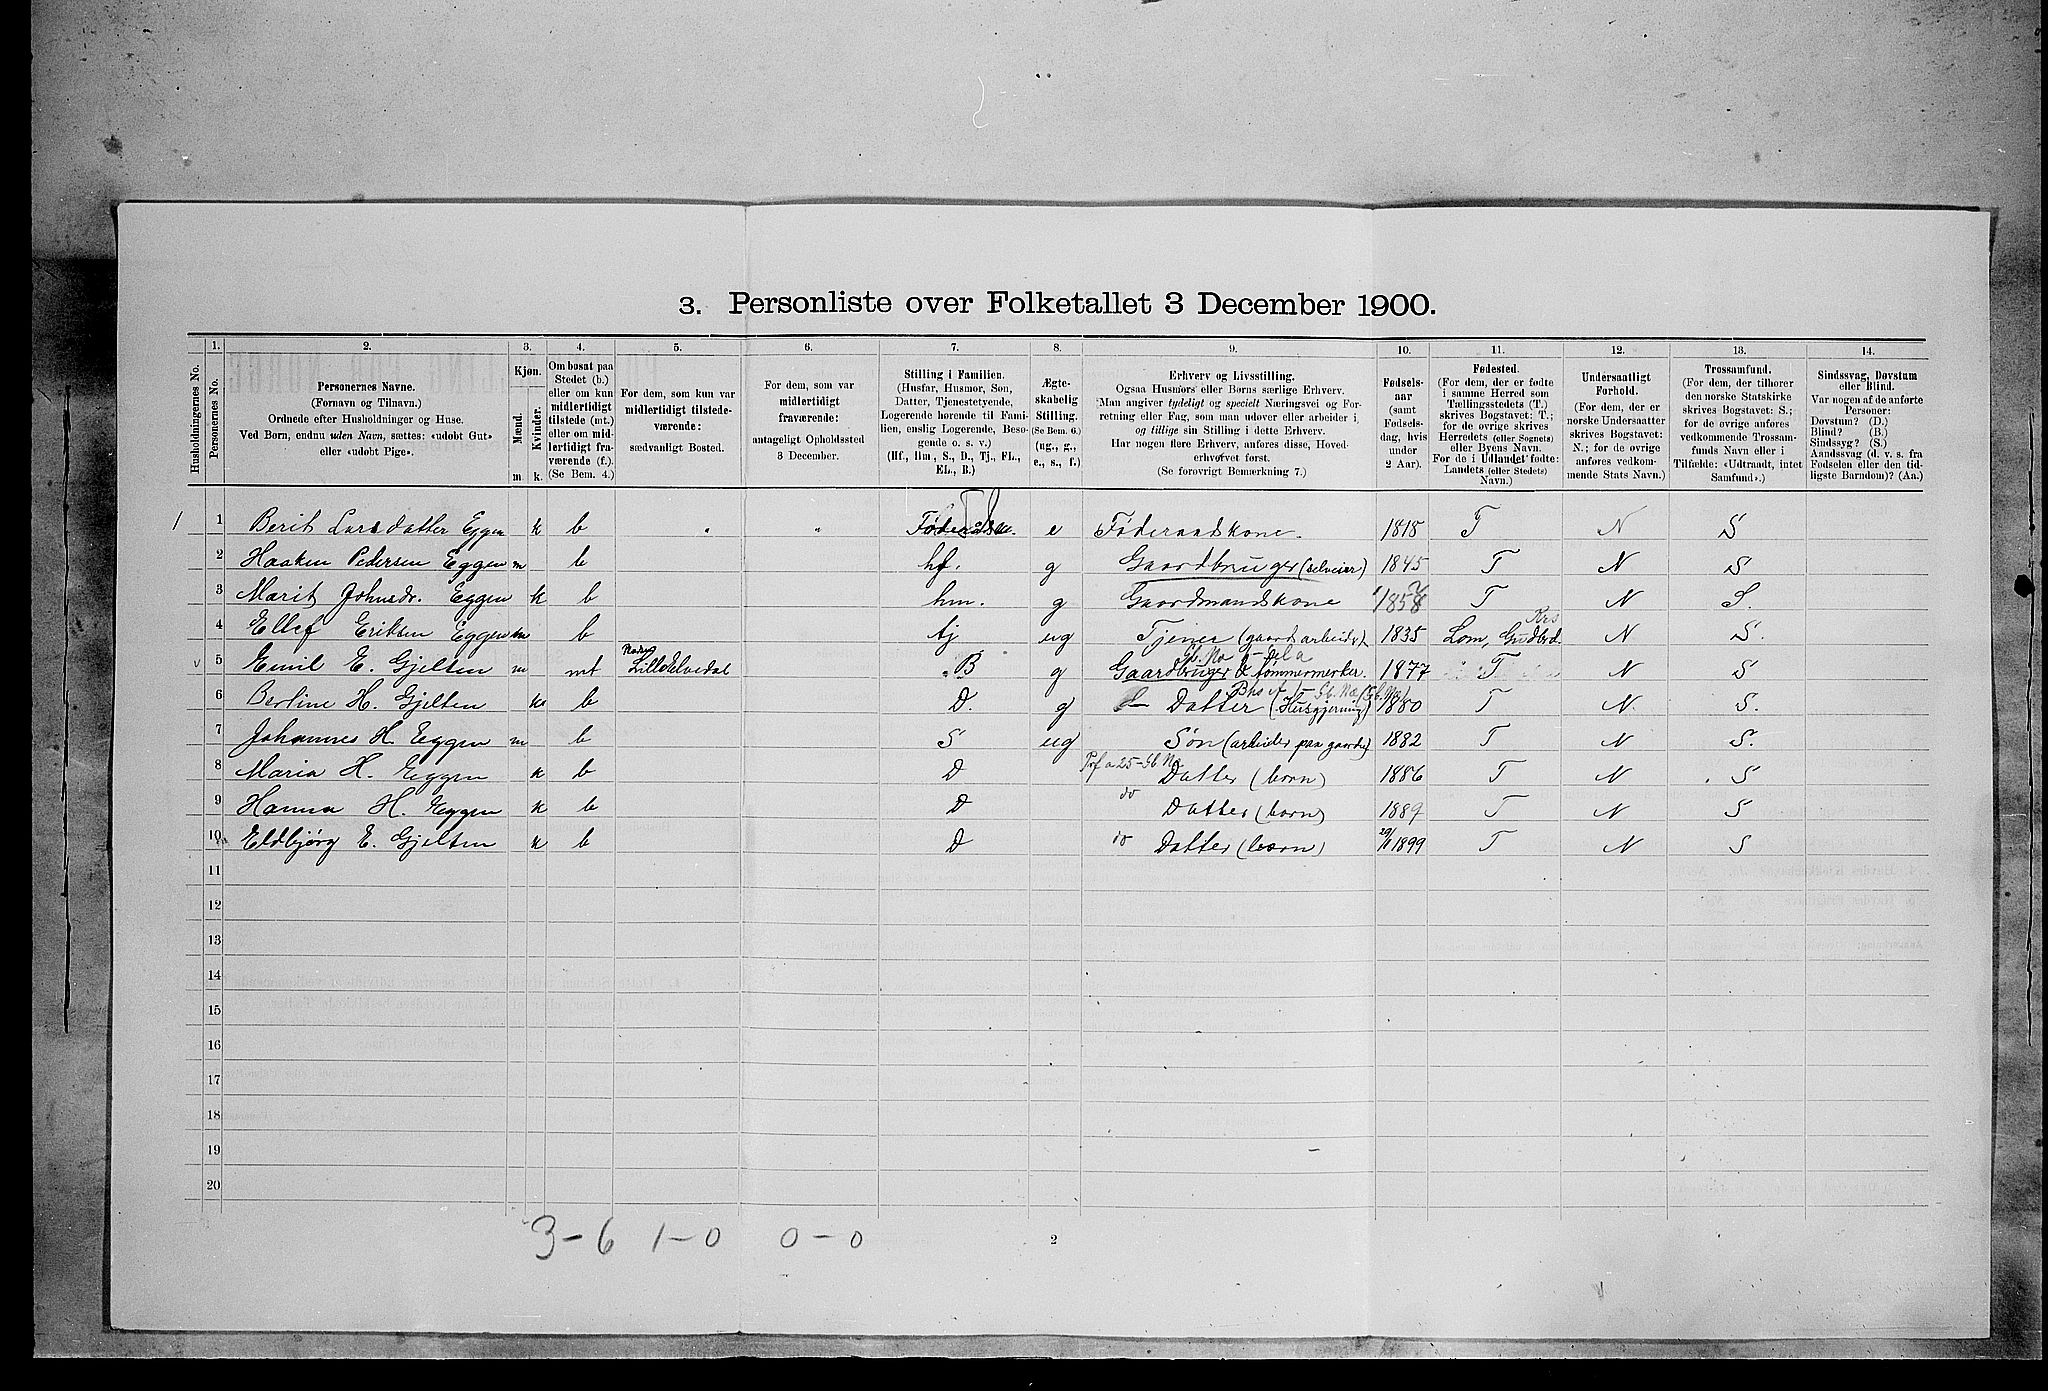 3. Personliste over Folketallet 3 December 1900.
Husholdningernes No.
1. Personernes No.
2. Personernes Navne.
(Fornavn og Tilnavn.)
Ordnede efter Husholdninger og Huse.
Ved Børn, endnu uden Navn, sættes: «udøbt Gut»
eller «udøbt Pige».
3. Kjøn.
Mænd. m.
Kvinder. k.
4. Om bosat paa
Stedet (b.)
eller om kun
midlertidigt
tilstede (mt.)
eller om mid-
lertidigt fra-
værende (f.).
(Se Bem. 4.)
5. For dem, som kun var
midlertidigt tilstede-
værende:
sædvanligt Bosted.
6. For dem, som var
midlertidigt
fraværende:
antageligt Opholdssted
3 December.
7. Stilling i Familien.
(Husfar, Husmor, Søn,
Datter, Tjenestetyende,
Logerende hørende til Fami-
lien, enslig Logerende, Besø-
gende o. s. v.)
(Hf., Hm., S., D., Tj., FL.,
EL., B.)
8. Ægte-
skabelig
Stilling.
(Se Bem. 6.)
(ug., g.,
e., s., f.)
9. Erhverv og Livsstilling.
Ogsaa Husmors eller Børns særlige Erhverv.
Man angiver tydeligt og specielt Næringsvei og For-
retning eller Fag, som man udøver eller arbeider i,
og tillige sin Stilling i dette Erhverv.
Har nogen flere Erhverv, anføres disse, Hoved-
erhvervet først.
(Se forøvrigt Bemærkning 7.)
10. Fødsels-
aar
(samt
Fødsels-
dag, hvis
under
2 Aar).
11. Fødested.
(For dem, der er fødte
i samme Herred som
Tællingsstedets (T.)
skrives Bogstavet: T.;
for de øvrige skrives
Herredets (eller Sognets)
eller Byens Navn.
For de i Udlandet fødte:
Landets (eller Stedets)
Navn.)
12. Undersaatligt
Forhold.
(For dem, der er
norske Undersaatter
skrives Bogstavet:
N.; for de øvrige
anføres vedkom-
mende Stats Navn.)
13. Trossamfund.
(For dem, der tilhører
den norske Statskirke
skrives Bogstavet: S.;
for de øvrige anføres
vedkommende Trossam-
funds Navn eller i
Tilfælde: «Udtraadt, intet
Samfund».)
14. Sindssvag, Døvstum
eller Blind.
Var nogen af de anførte
Personer:
Døvstum? (D.)
Blind? (B.)
Sindssyg? (S.)
Aandssvag (d. v. s. fra
Fødselen eller den tid-
ligste Barndom)? (Aa.)
1 1 Berit Larsdatter Eggen k b e Føderaadskone. 1818 T N S
2 Haaken Pedersen Eggen m b hf. g Gaardbruger (selveier) 1845 T N S
3 Marit Johnsdr. Eggen k b hm. g Gaardmandskone T N S.
4 Ellef Eriksen Eggen m b tj ug Tjener (gaardsarbeider) 1835 Lom, Gudbrd. Krs N S.
5 Emil E. Gjelten m mt Lilleelvedal B g Gaardbruger & tømmermerker. 1877 T N S
6 Berline H. Gjelten k b D. g Datter (Husgjerning) 1880 T N. S.
7 Johannes H. Eggen m b S ug Søn (arbeider paa gaarden) 1882 T N S.
8 Maria H. Eggen k b D Datter (barn) 1886 T N S
9 Hanna H. Eggen k b D do Datter (barn) 1889 T N S
10 Eldbjørg E. Gjelten k b D do Datter (barn) 1899 T N S
11
12
13
14
15
16
17
18
19
20
3-6 1-0 0-0
2